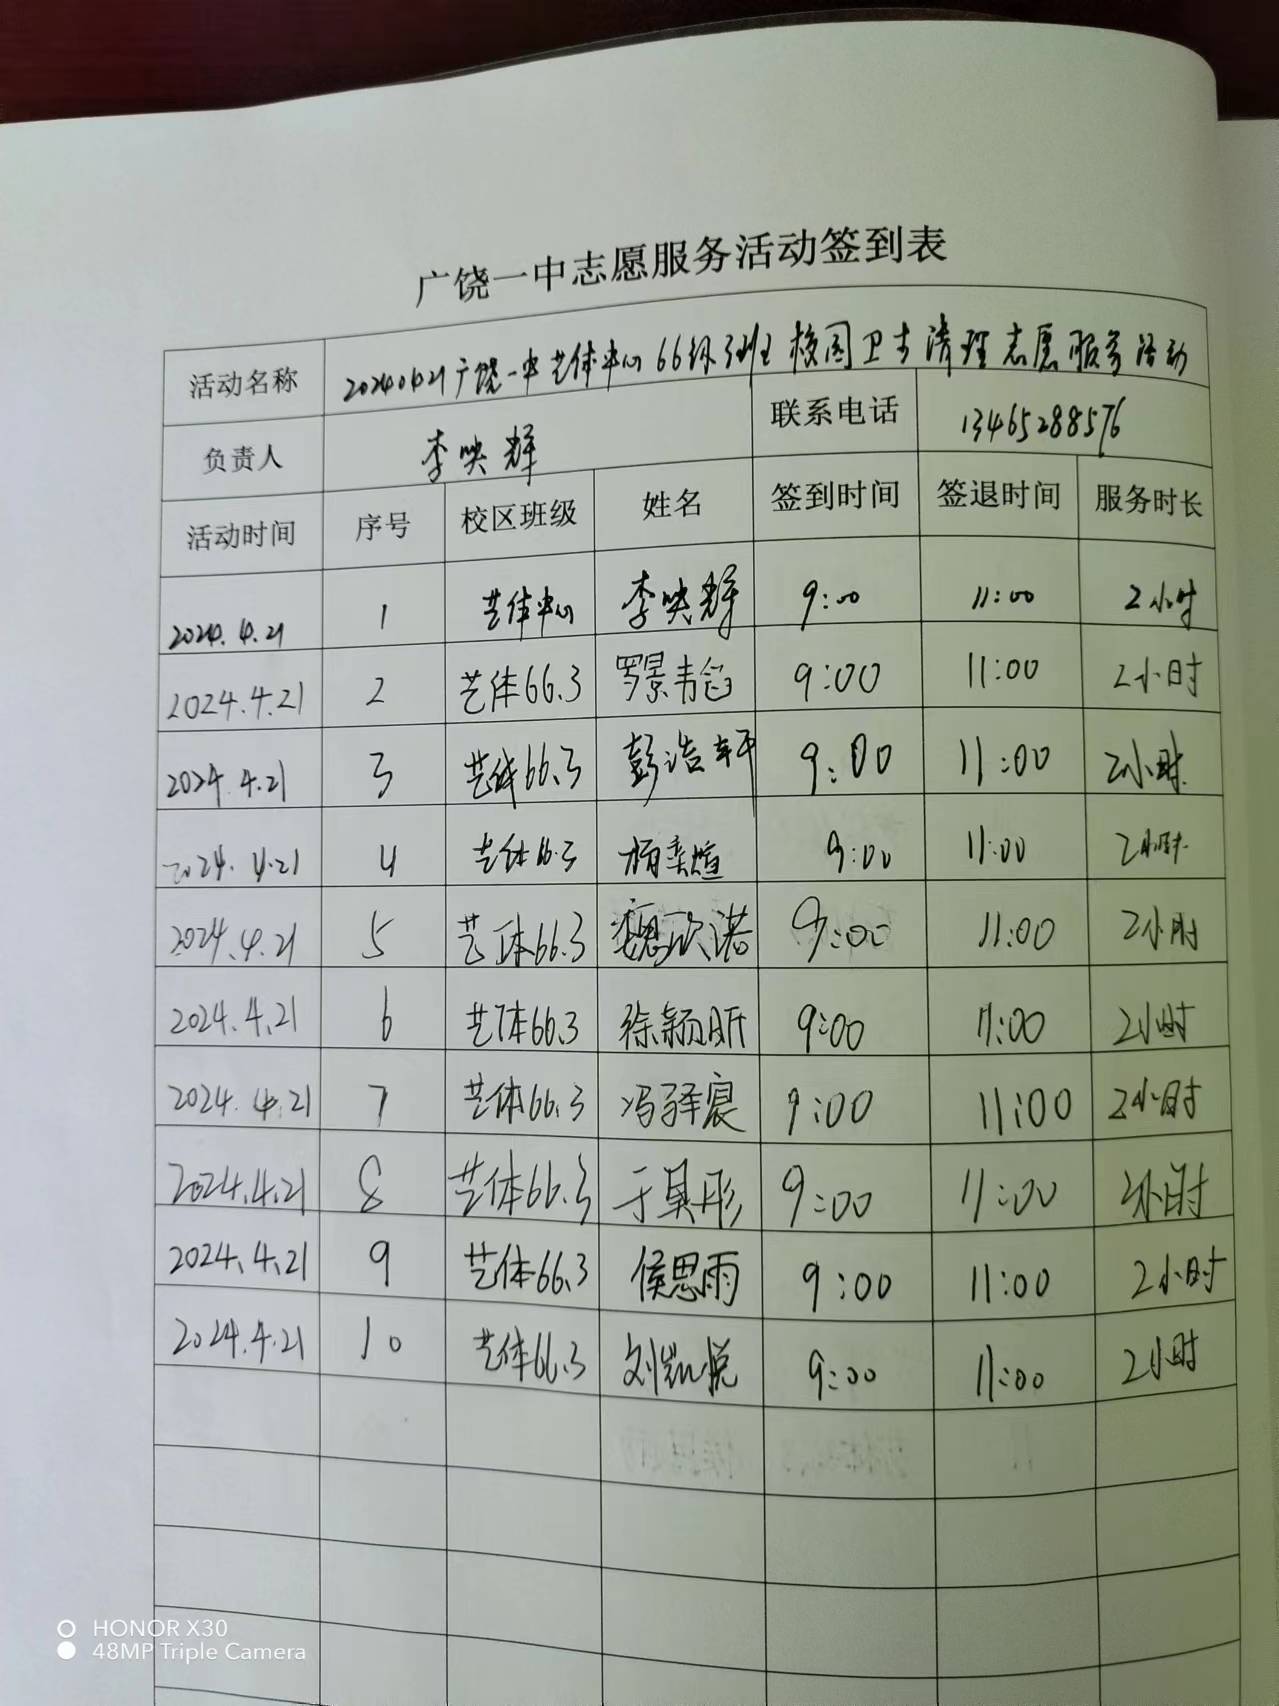 广饶一中志愿服务活动签到表
活动名称 20240421广饶一中艺体中心66级3班校园卫生清理志愿服务活动
负责人 李映辉 联系电话 13465288576
活动时间 序号 校区班级 姓名 签到时间 签退时间 服务时长
2024.4.21 1 艺体中心 李映辉 9:00 11:00 2小时
2024.4.21 2 艺体66.3 罗景韦 9:00 11:00 2小时
2024.4.21 3 艺体66.3 彭浩轩 9:00 11:00 2小时
2024.4.21 4 艺体66.3 杨奕煊 9:00 11:00 2小时
2024.4.21 5 艺体66.3 魏欣诺 9:00 11:00 2小时
2024.4.21 6 艺体66.3 徐颖昕 9:00 11:00 2小时
2024.4.21 7 艺体66.3 冯驿宸 9:00 11:00 2小时
2024.4.21 8 艺体66.3 于昊彤 9:00 11:00 2小时
2024.4.21 9 艺体66.3 侯思雨 9:00 11:00 2小时
2024.4.21 10 艺体66.3 刘凯悦 9:00 11:00 2小时
HONOR X30
48MP Triple Camera